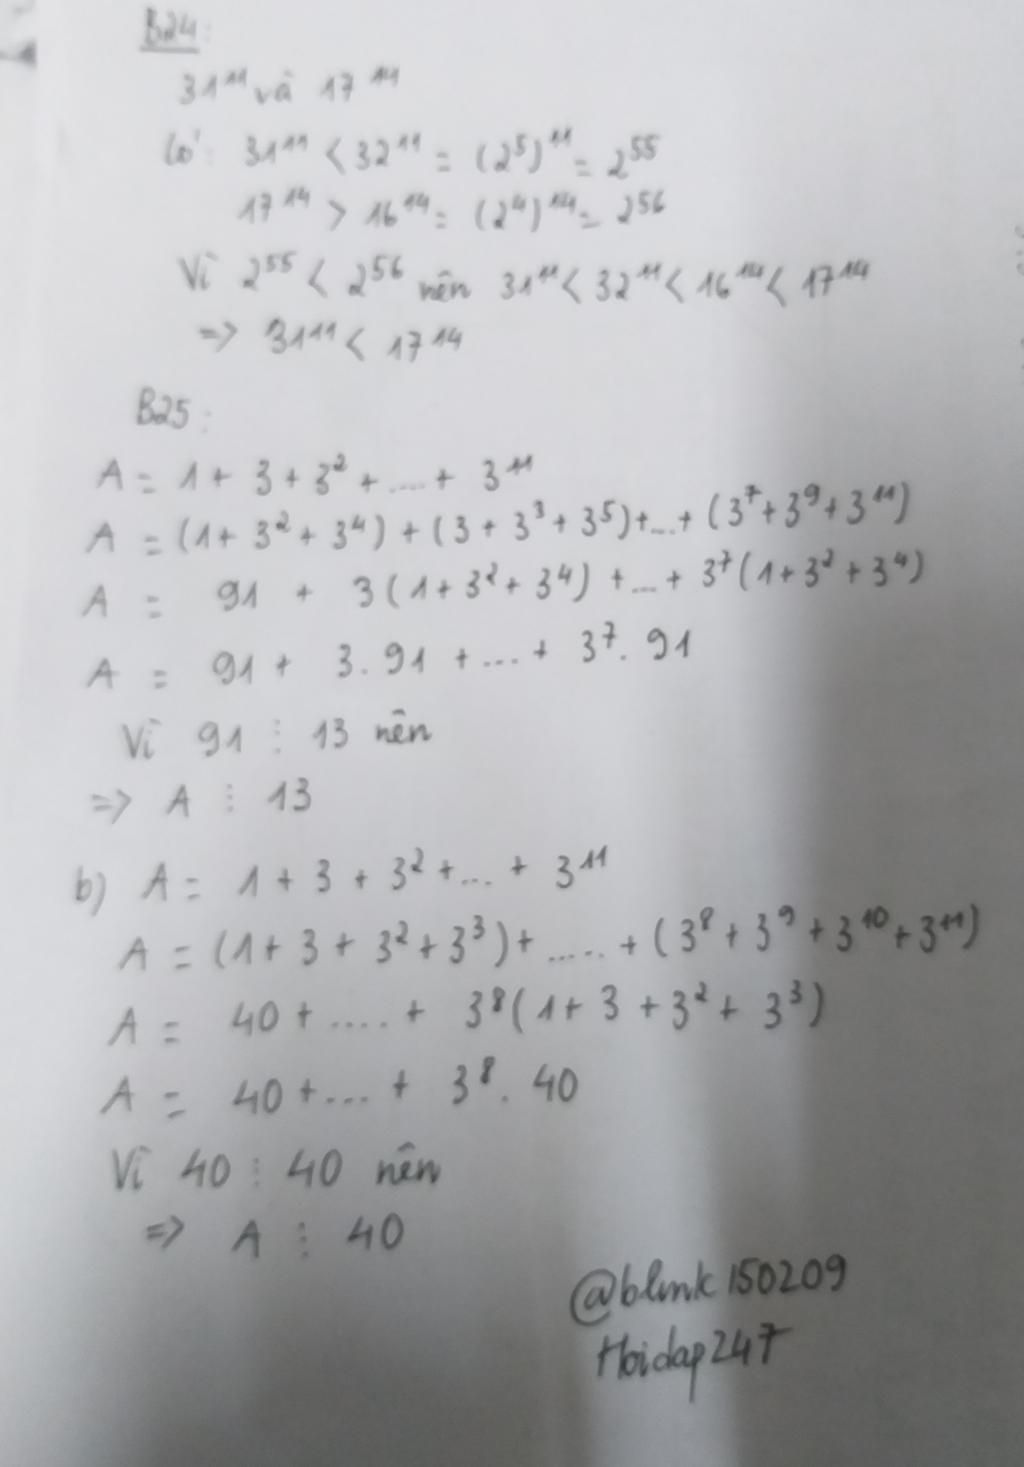 B24:
31¹¹ và 17¹⁴
Có: 31¹¹ < 32¹¹ = (2⁵)¹¹ = 2⁵⁵
17¹⁴ > 16¹⁴ = (2⁴)¹⁴ = 2⁵⁶
Vì 2⁵⁵ < 2⁵⁶ nên 31¹¹ < 32¹¹ < 16¹⁴ < 17¹⁴
=> 31¹¹ < 17¹⁴
B25:
A = 1 + 3 + 3² + .... + 3¹¹
A = (1 + 3² + 3⁴) + (3 + 3³ + 3⁵) + ... + (3⁷ + 3⁹ + 3¹¹)
A = 91 + 3(1 + 3² + 3⁴) + ... + 3⁷(1 + 3² + 3⁴)
A = 91 + 3.91 + .... + 3⁷.91
Vì 91 ⋮ 13 nên
=> A ⋮ 13
b) A = 1 + 3 + 3² + ... + 3¹¹
A = (1 + 3 + 3² + 3³) + ..... + (3⁸ + 3⁹ + 3¹⁰ + 3¹¹)
A = 40 + .... + 3⁸(1 + 3 + 3² + 3³)
A = 40 + .... + 3⁸.40
Vì 40 ⋮ 40 nên
=> A ⋮ 40
@blink150209
Hoidap247